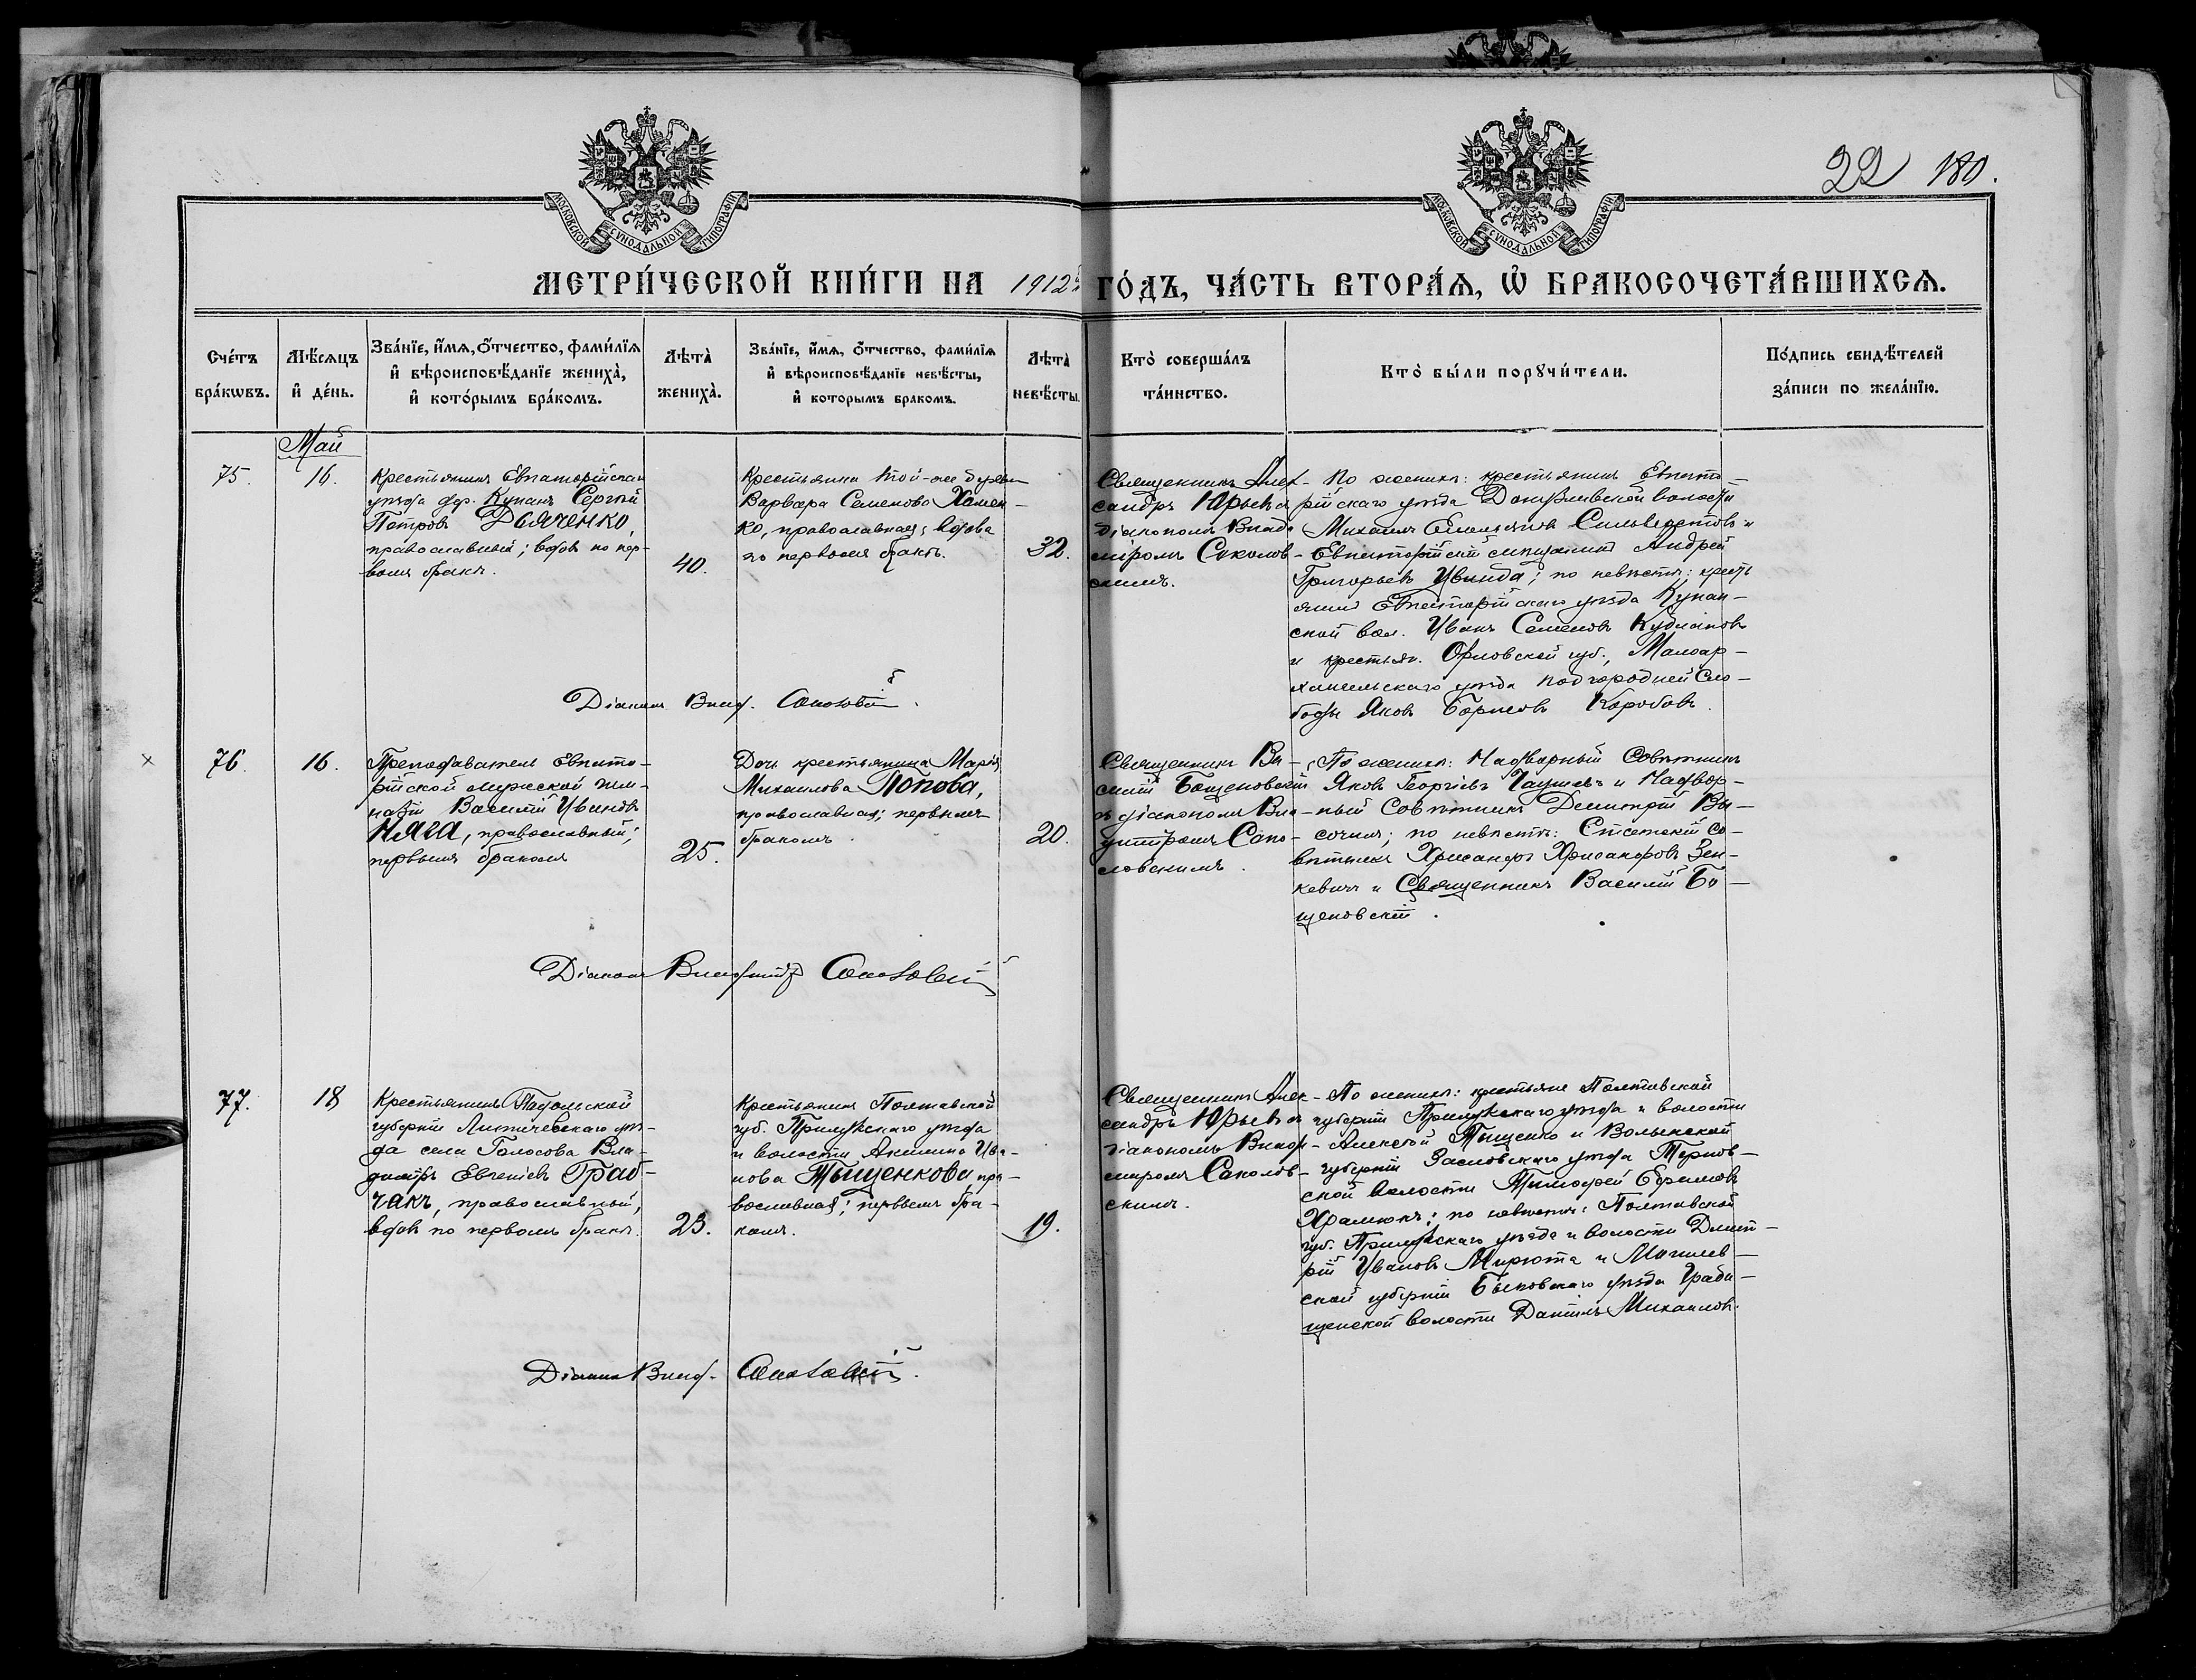 22 180.
МОСКОВСКОЙ СУНОДАЛЬНОЙ ТИПОГРАФІИ
МОСКОВСКОЙ СУНОДАЛЬНОЙ ТИПОГРАФІИ
МЕТРИ́ЧЕСКОЙ КНИ́ГИ НА 1912й ГО́ДЪ, ЧА́СТЬ ВТОРА́Ѧ, Ѽ БРАКОСОЧЕТА́ВШИХСѦ.
Сче́тъ бра́кѡвъ.
Мѣ́сѧцъ и҆ де́нь.
Зва́нїе, и҆́мѧ, ѻ҆́тчество, фами́лїѧ
и҆ вѣроисповѣ́данїе жениха̀,
и҆ кото́рымъ бра́комъ.
Лѣта̀ жениха̀.
Зва́нїе, и҆́мѧ, ѻ҆́тчество, фами́лїѧ
и҆ вѣроисповѣ́данїе невѣ́сты,
и҆ которымъ бракомъ.
Лѣта̀ невѣ́сты.
Кто̀ соверша́лъ
та́инство.
Кто̀ бы́ли порꙋчи́тели.
По́дпись свидѣ́телей
за́писи по жела́нїю.
Май
75.
16.
Крестьянинъ Евпаторійскаго
уѣзда дер. Кунанъ Сергѣй
Петровъ Дьяченко,
православный; вдовъ по пер-
вомъ бракѣ.
40.
Крестьянка той-же деревни
Варвара Семенова Хомен-
ко, православная; вдова
по первомъ бракѣ.
32.
Священникъ Алек-
сандръ Юрьевъ съ
діакономъ Влади
міромъ Соколов-
скимъ.
По женихѣ: крестьянинъ Евпато-
рійскаго уѣзда Донузлавской волости
Михаилъ Емельяновъ Сильверстовъ и
Евпаторійскій мѣщанинъ Андрей
Григорьевъ Цвинда; по невѣстѣ: кресть
янинъ Евпаторійскаго уѣзда Кунан-
ской вол. Иванъ Семеновъ Кудлановъ
и крестьян. Орловской губ., Малоар-
хангельскаго уѣзда Подгородней Сло-
боды Яковъ Борисовъ Коробовъ.
Діаконъ Влад. Соколовскій.
76.
16.
Преподаватель Евпато-
рійской мужской гим-
назіи Василій Ивановъ
Няга, православный;
первымъ бракомъ
25.
Дочь крестьянина Марія
Михаилова Попова,
православная; первымъ
бракомъ.
20.
Священникъ Ва-
силій Бощановскій
съ діакономъ Вла-
диміромъ Соко-
ловскимъ.
По женихѣ: Надворный Совѣтникъ
Яковъ Георгіевъ Чаушевъ и Надвор-
ный Совѣтникъ Димитрій Вы-
сочинъ; по невѣстѣ: Статскій Со-
вѣтникъ Хрисанфъ Хрисанфовъ Зен-
кевичъ и Священникъ Василій Бо-
щановскій.
Діаконъ Владиміръ Соколовскій
77.
18
Крестьянинъ Подольской
губерніи Литичевскаго уѣз-
да села Голосова Вла-
диміръ Евгеніевъ Граб-
чакъ, православный,
вдовъ по первомъ бракѣ.
23.
Крестьянка Полтавской
губ. Прилукскаго уѣзда
и волости Акилина Ива-
нова Тыщенкова, пра-
вославная; первымъ бра-
комъ.
19.
Священникъ Алек-
сандръ Юрьевъ съ
діакономъ Влади-
міромъ Соколов-
скимъ.
По женихѣ: крестьяне Полтавской
губерніи Прилукскаго уѣзда и волости
Алексѣй Тыщенко и Волынской
губерніи Заславскаго уѣзда Тернов-
ской волости Тимофей Ефимовъ
Храмюкъ; по невѣстѣ: Полтавской
губ. Прилукскаго уѣзда и волости Дмит-
рій Ивановъ Мирюта и Могилев-
ской губерніи Быховскаго уѣзда Гради-
щенской волости Даніилъ Михаиловъ.
Діаконъ Влад. Соколовскій.